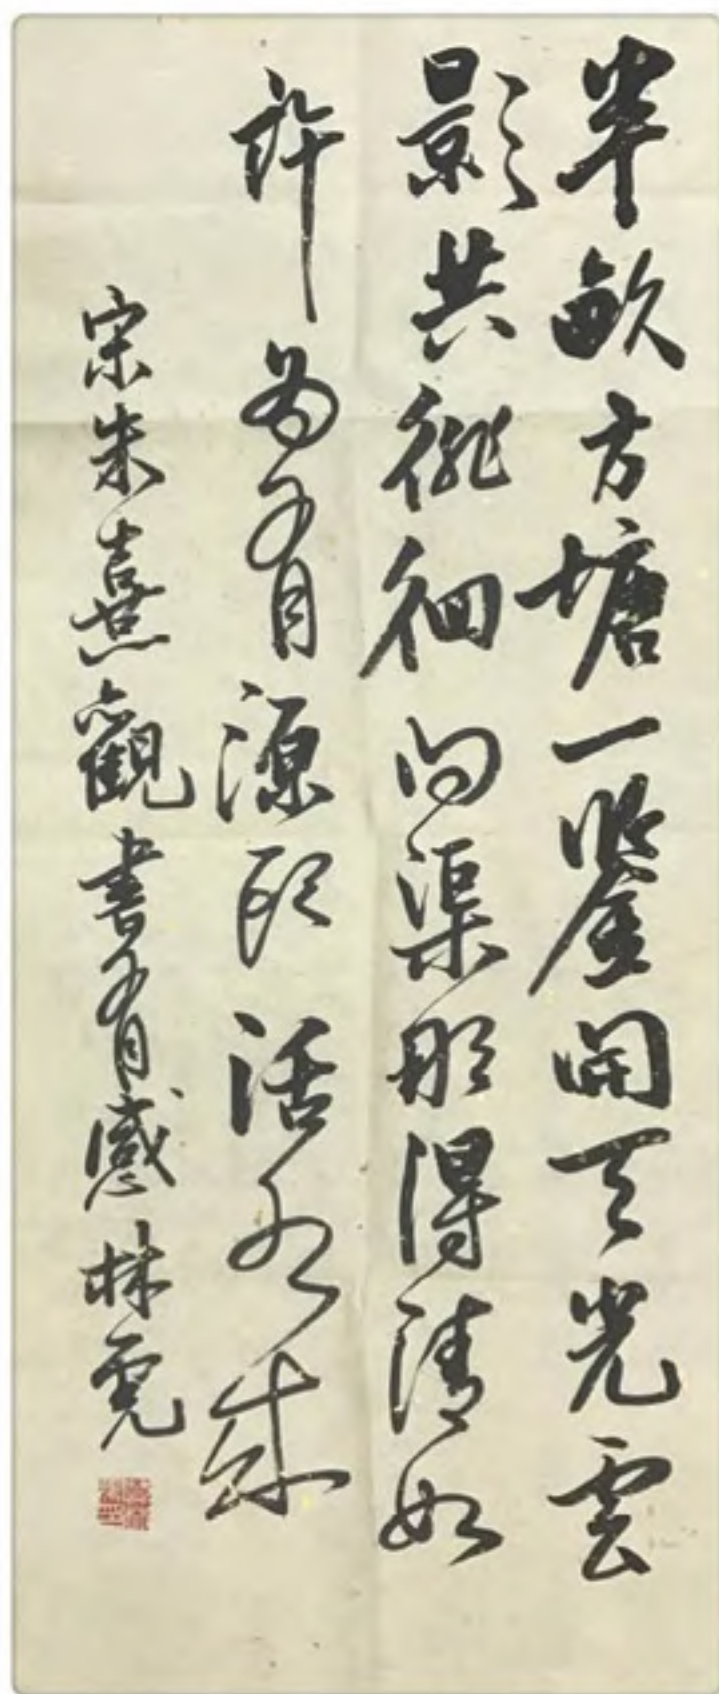 半畝方塘一鑒開天光雲
影共徘徊問渠那得清如
許為有源頭活水來
宋朱熹觀書有感林霓